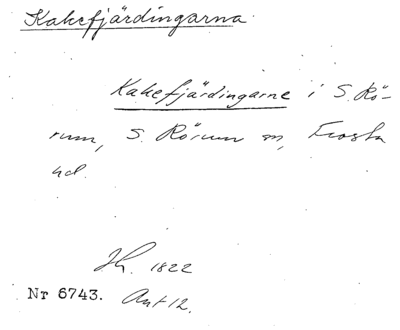 Kakefjärdingarna
Kakefjärdingarne i S. Rö-
rum, S. Rörum sn, Frosta
hd.
Jh. 1822
Nr 6743. Ant 12.